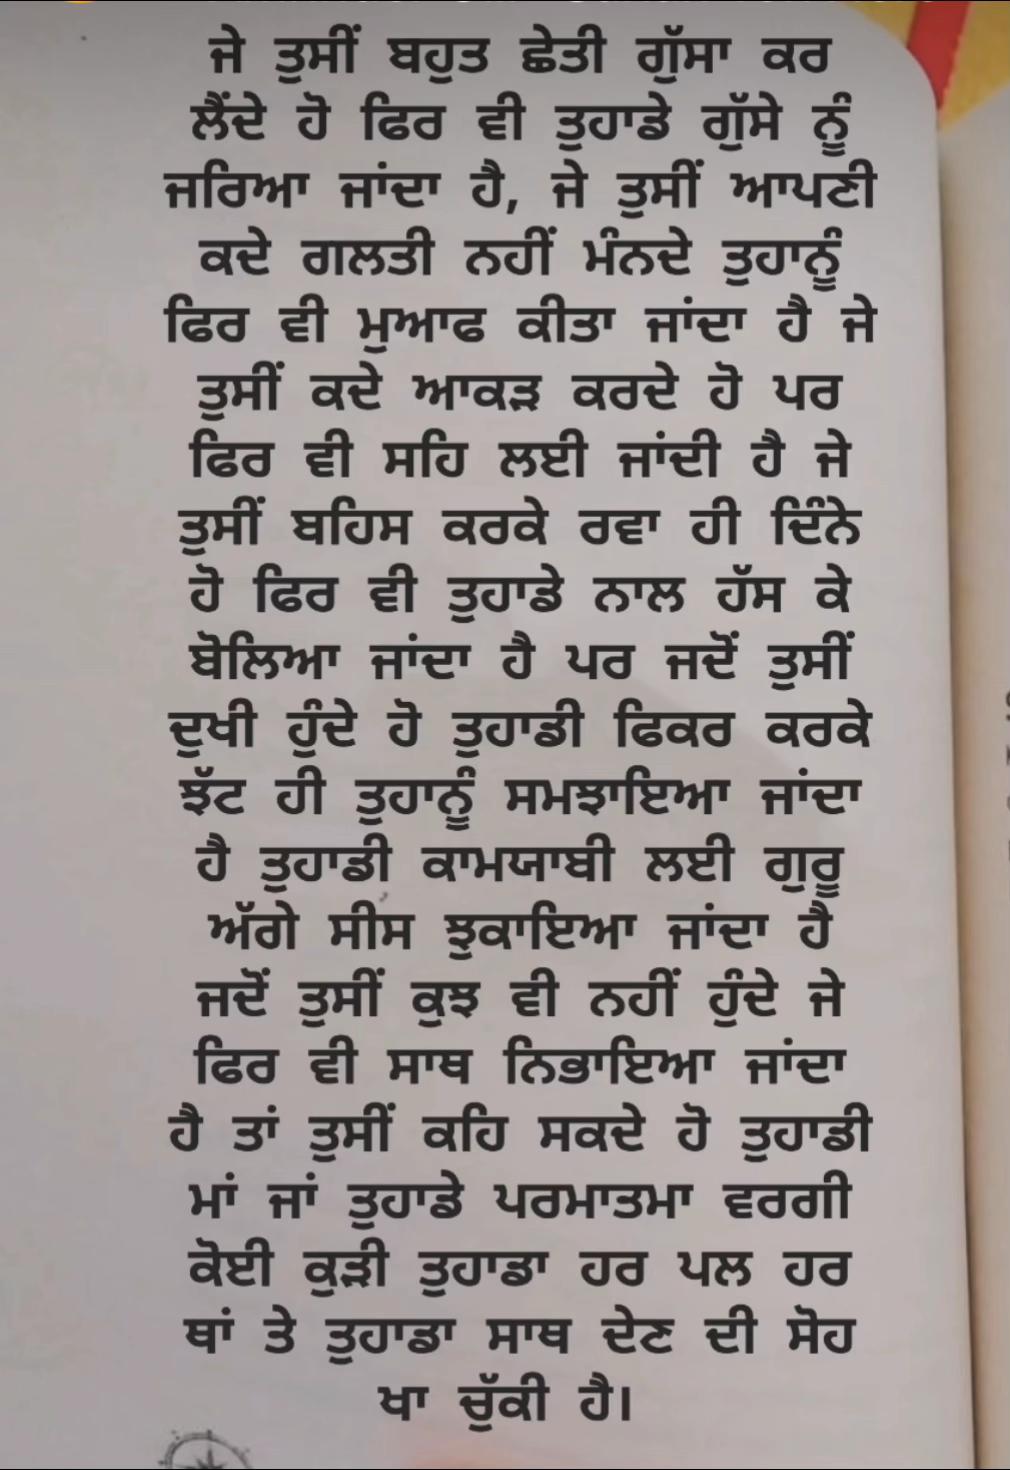 ਜੇ ਤੁਸੀਂ ਬਹੁਤ ਛੇਤੀ ਗੁੱਸਾ ਕਰ
ਲੈਂਦੇ ਹੋ ਫਿਰ ਵੀ ਤੁਹਾਡੇ ਗੁੱਸੇ ਨੂੰ
ਜਰਿਆ ਜਾਂਦਾ ਹੈ, ਜੇ ਤੁਸੀਂ ਆਪਣੀ
ਕਦੇ ਗਲਤੀ ਨਹੀਂ ਮੰਨਦੇ ਤੁਹਾਨੂੰ
ਫਿਰ ਵੀ ਮੁਆਫ ਕੀਤਾ ਜਾਂਦਾ ਹੈ ਜੇ
ਤੁਸੀਂ ਕਦੇ ਆਕੜ ਕਰਦੇ ਹੋ ਪਰ
ਫਿਰ ਵੀ ਸਹਿ ਲਈ ਜਾਂਦੀ ਹੈ ਜੇ
ਤੁਸੀਂ ਬਹਿਸ ਕਰਕੇ ਰਵਾ ਹੀ ਦਿੰਨੇ
ਹੋ ਫਿਰ ਵੀ ਤੁਹਾਡੇ ਨਾਲ ਹੱਸ ਕੇ
ਬੋਲਿਆ ਜਾਂਦਾ ਹੈ ਪਰ ਜਦੋਂ ਤੁਸੀਂ
ਦੁਖੀ ਹੁੰਦੇ ਹੋ ਤੁਹਾਡੀ ਫਿਕਰ ਕਰਕੇ
ਝੱਟ ਹੀ ਤੁਹਾਨੂੰ ਸਮਝਾਇਆ ਜਾਂਦਾ
ਹੈ ਤੁਹਾਡੀ ਕਾਮਯਾਬੀ ਲਈ ਗੁਰੂ
ਅੱਗੇ ਸੀਸ ਝੁਕਾਇਆ ਜਾਂਦਾ ਹੈ
ਜਦੋਂ ਤੁਸੀਂ ਕੁਝ ਵੀ ਨਹੀਂ ਹੁੰਦੇ ਜੇ
ਫਿਰ ਵੀ ਸਾਥ ਨਿਭਾਇਆ ਜਾਂਦਾ
ਹੈ ਤਾਂ ਤੁਸੀਂ ਕਹਿ ਸਕਦੇ ਹੋ ਤੁਹਾਡੀ
ਮਾਂ ਜਾਂ ਤੁਹਾਡੇ ਪਰਮਾਤਮਾ ਵਰਗੀ
ਕੋਈ ਕੁੜੀ ਤੁਹਾਡਾ ਹਰ ਪਲ ਹਰ
ਥਾਂ ਤੇ ਤੁਹਾਡਾ ਸਾਥ ਦੇਣ ਦੀ ਸੋਹ
ਖਾ ਚੁੱਕੀ ਹੈ।